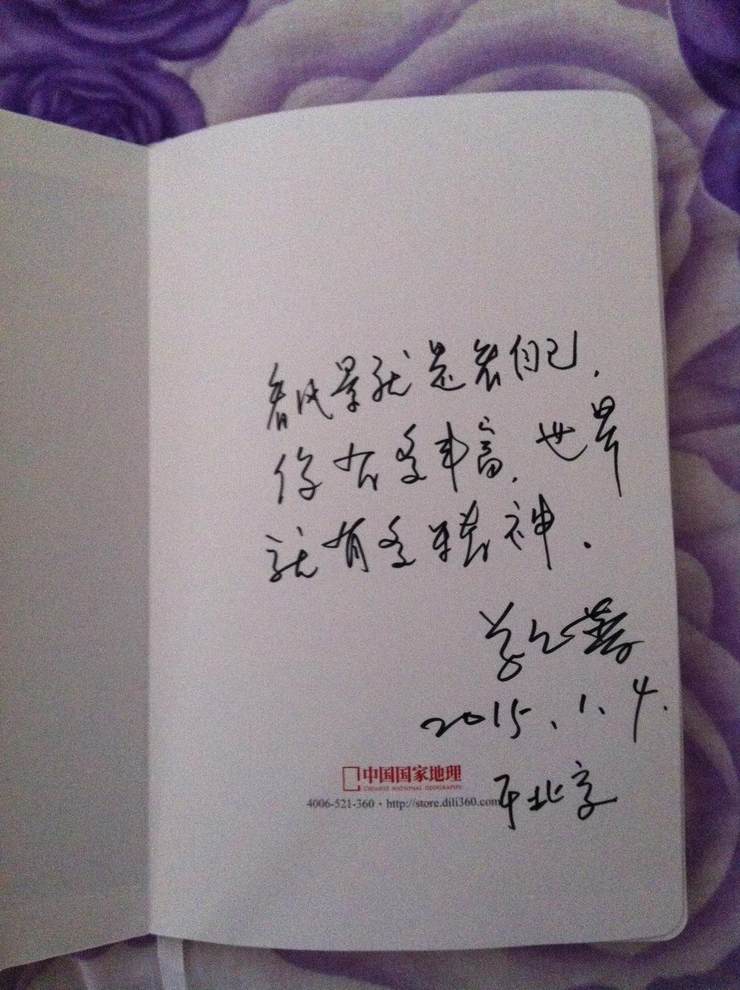 看风景就是看自己,
你有多丰富,世界
就有多精神.
2015.1.4.
中国国家地理
CHINESE NATIONAL GEOGRAPHY
4006-521-360 · http://store.dili360.com
于北京